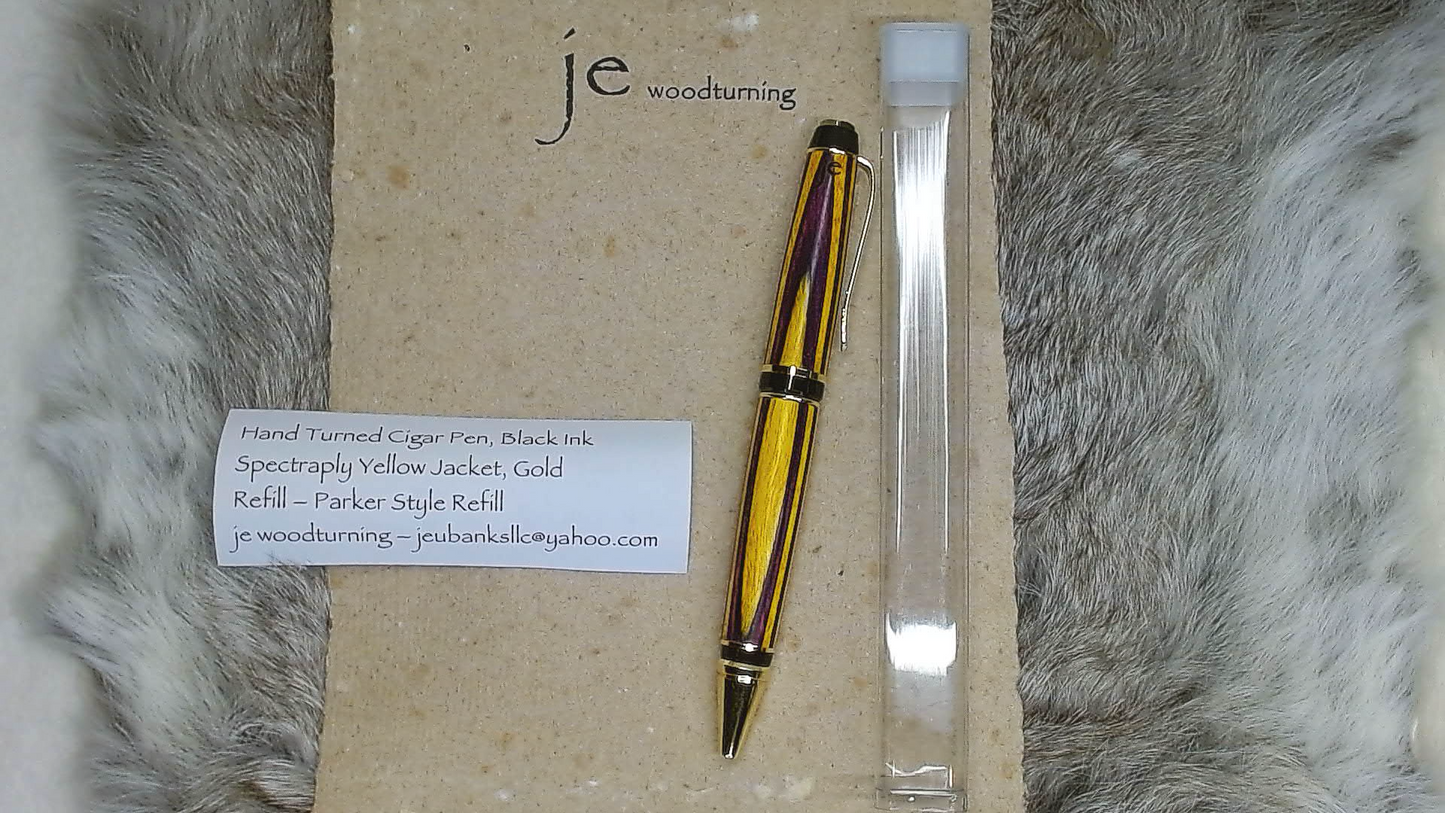 je woodturning
je
Hand Turned Cigar Pen, Black Ink
Spectraply Yellow Jacket, Gold
Refill – Parker Style Refill
je woodturning – jeubanksllc@yahoo.com